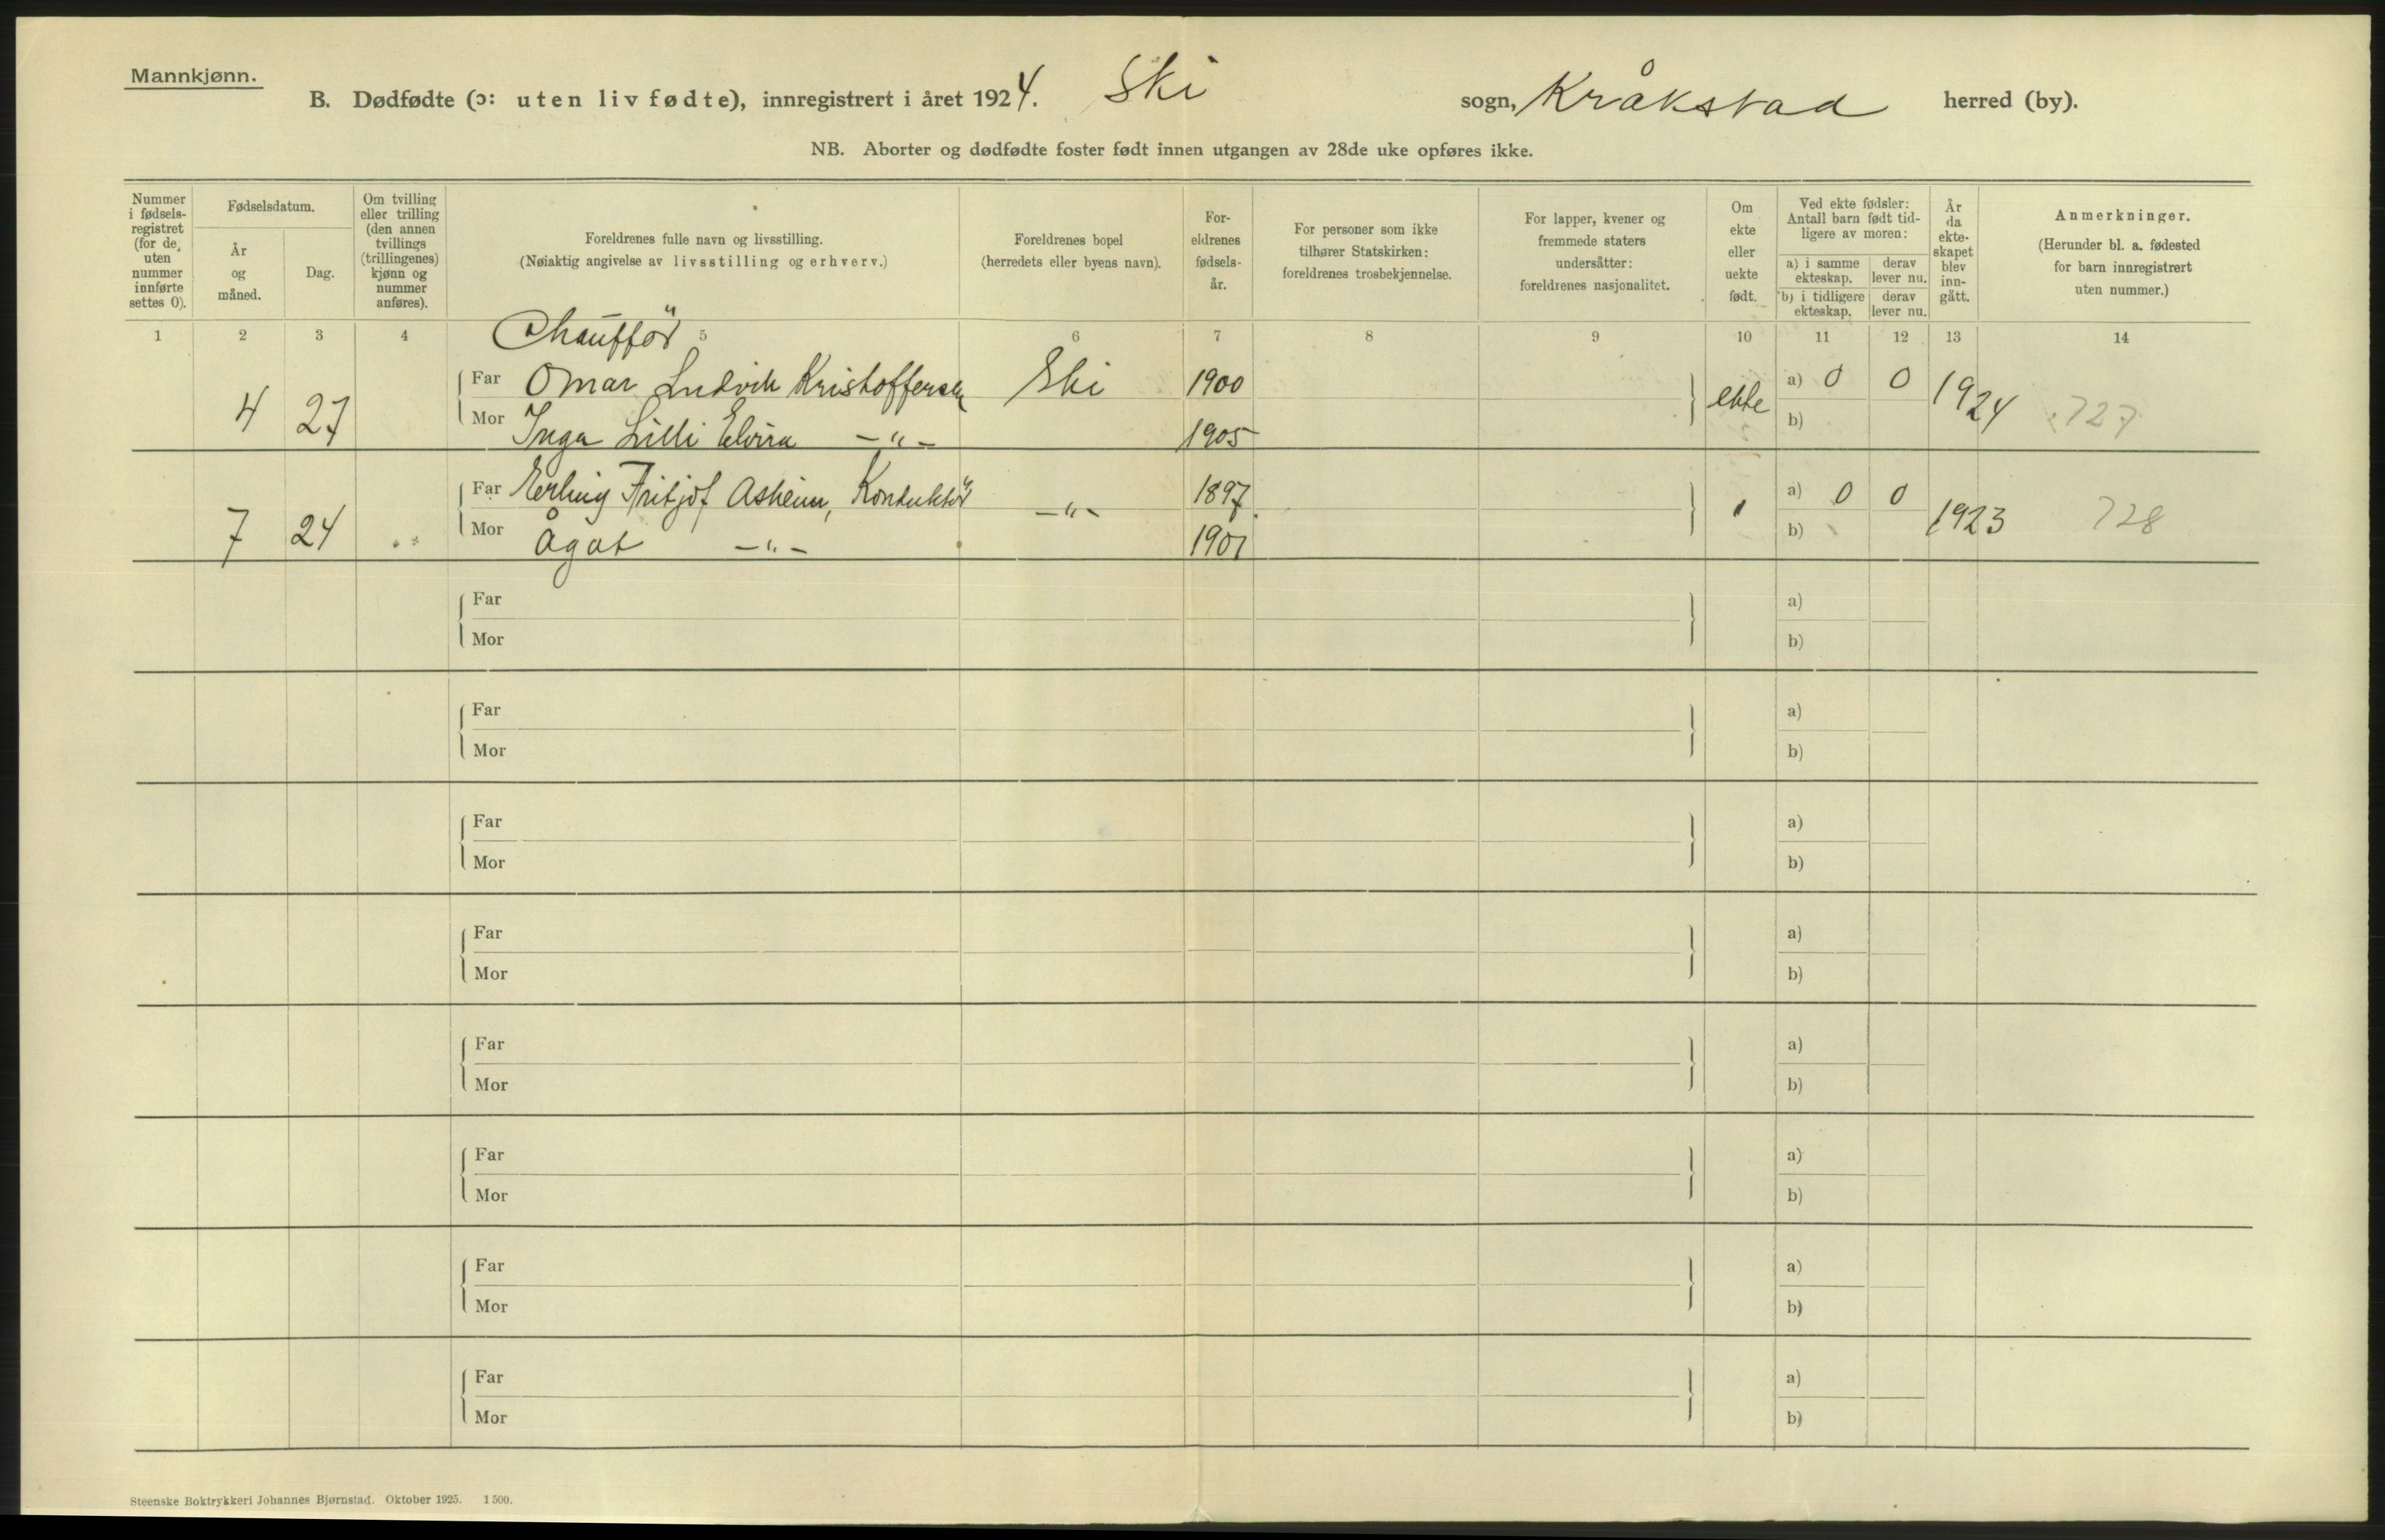 Mannkjønn.
B. Dødfødte (ɔ: uten liv fødte), innregistrert i året 1924. Ski sogn, Kråkstad herred (by).
NB. Aborter og dødfødte foster født innen utgangen av 28de uke opføres ikke.
Nummer i fødsels-registret (for de, uten nummer innførte settes 0).
Fødselsdatum.
År og måned.
Dag.
Om tvilling eller trilling (den annen tvillings (trillingenes) kjønn og nummer anføres).
Foreldrenes fulle navn og livsstilling.
(Nøiaktig angivelse av livsstilling og erhverv.)
Foreldrenes bopel
(herredets eller byens navn).
For-eldrenes fødsels-år.
For personer som ikke tilhører Statskirken: foreldrenes trosbekjennelse.
For lapper, kvener og fremmede staters undersåtter: foreldrenes nasjonalitet.
Om ekte eller uekte født.
Ved ekte fødsler: Antall barn født tid-ligere av moren:
a) i samme ekteskap. derav lever nu.
b) i tidligere ekteskap. derav lever nu.
År da ekte-skapet blev inn-gått.
Anmerkninger.
(Herunder bl. a. fødested for barn innregistrert uten nummer.)
1 2 3 4 5 6 7 8 9 10 11 12 13 14
Chauffør
4 27 Far Omar Ludvik Kristoffersen Ski 1900 ekte a) 0 0 1924 727
Mor Inga Lilli Elvira —"— 1905 b)
7 24 Far Erling Fritjof Asheim, Konduktør —"— 1897 " a) 0 0 1923 728
Mor Ågot —"— 1901 b)
Far a)
Mor b)
Far a)
Mor b)
Far a)
Mor b)
Far a)
Mor b)
Far a)
Mor b)
Far a)
Mor b)
Far a)
Mor b)
Far a)
Mor b)
Steenske Boktrykkeri Johannes Bjørnstad. Oktober 1925. 1500.